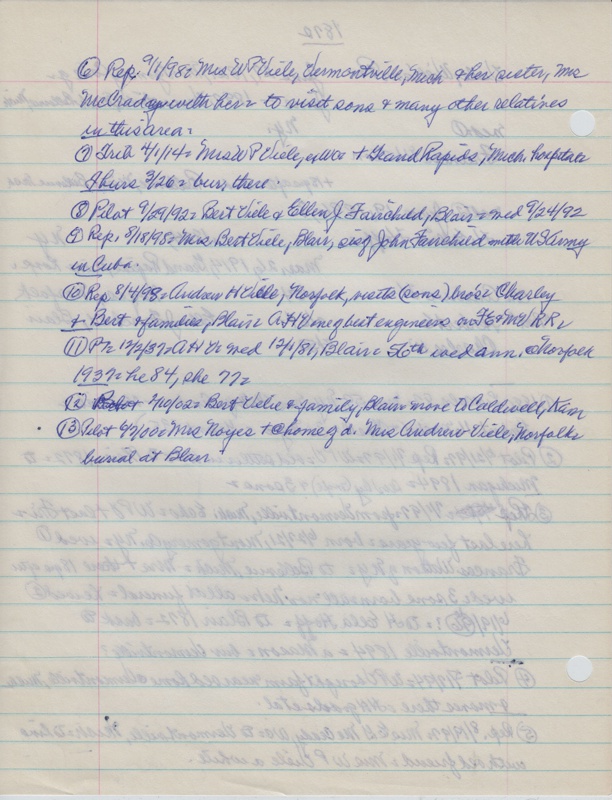 1872
⑥ Rep. 9/1/98 = Mrs W P Viele, Vermontville, Mich & her sister, Mrs
McCraday with her = to visit sons & many other relatives
in this area =
⑦ Trib 4/1/14 = Mrs W P Viele, + Grand Rapids, Mich. hospital
Thurs 3/26 = bur. there.
⑧ Pilot 9/29/92 = Bert Viele & Ellen J. Fairchild, Blair = med 9/24/92
⑨ Rep. 8/18/98 = Mrs Bert Viele, Blair, sis of John Fairchild with U S Army
in Cuba.
⑩ Rep 8/4/98 = Andrew H Viele, Norfolk, visits (sons) bros = Charley
& Bert & families, Blair = A H V one of best engineers on F E & M V RR =
⑪ 12/2/37 = A H V = med 12/1/81, Blair = 56th wed ann. @ Norfolk
1937 = he 84, she 77 =
⑫ 2/10/02 = Bert Viele & family, Blair = move to Caldwell, Kan
⑬ Pilot 4/2/00 = Mrs Noyes + @ home of d. Mrs Andrew Viele, Norfolk =
burial at Blair